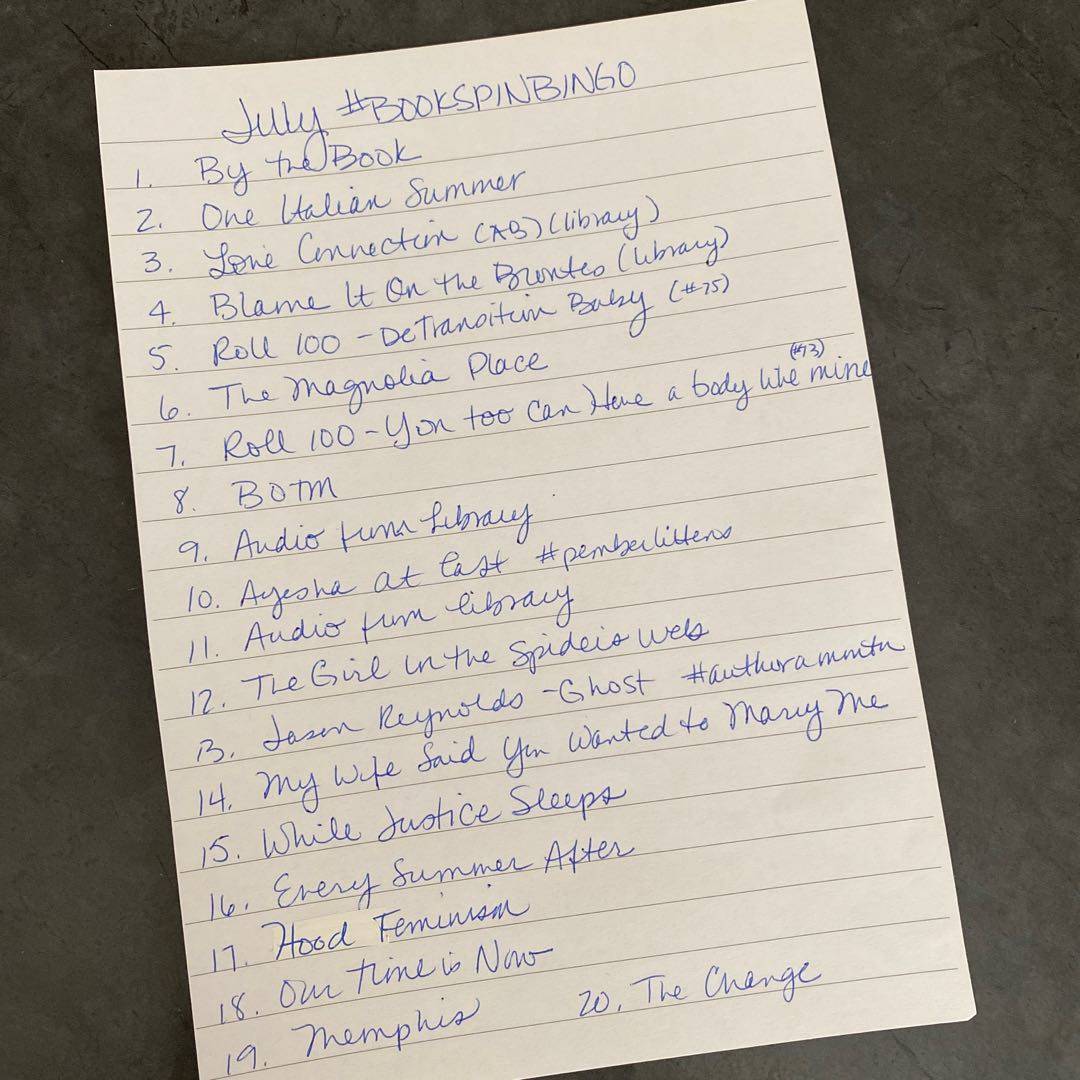 July #BOOKSPINBINGO
1. By the Book
2. One Italian Summer
3. Love Connection (AB) (library)
4. Blame It On the Brontes (library)
5. Roll 100 - DeTransition Baby (#75)
6. The Magnolia Place
7. Roll 100 - You too Can Have a body like mine (#73)
8. BOTM
9. Audio from Library
10. Ayesha at Last #pemberlittens
11. Audio from library
12. The Girl in the Spider's Web
13. Jason Reynolds - Ghost #authoramonth
14. My Wife Said You Wanted to Marry Me
15. While Justice Sleeps
16. Every Summer After
17. Hood Feminism
18. Our Time is Now
19. Memphis 20. The Change